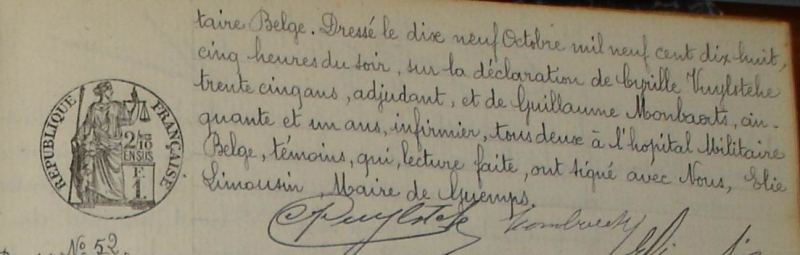 taire Belge. Dressé le dix neuf Octobre mil neuf cent dix huit,
cinq heures du soir, sur la déclaration de Cyrille Vuylsteke
trente cinq ans, adjudant, et de Guillaume Monbaerts, cin-
quante et un ans, infirmier, tous deux à l'hopital Militaire
Belge, témoins, qui, lecture faite, ont signé avec Nous, Elie
Limousin, Maire de Guemps.
RÉPUBLIQUE FRANÇAISE
2/10
EN SUS
F.
1
CVuylsteke
Nº 52